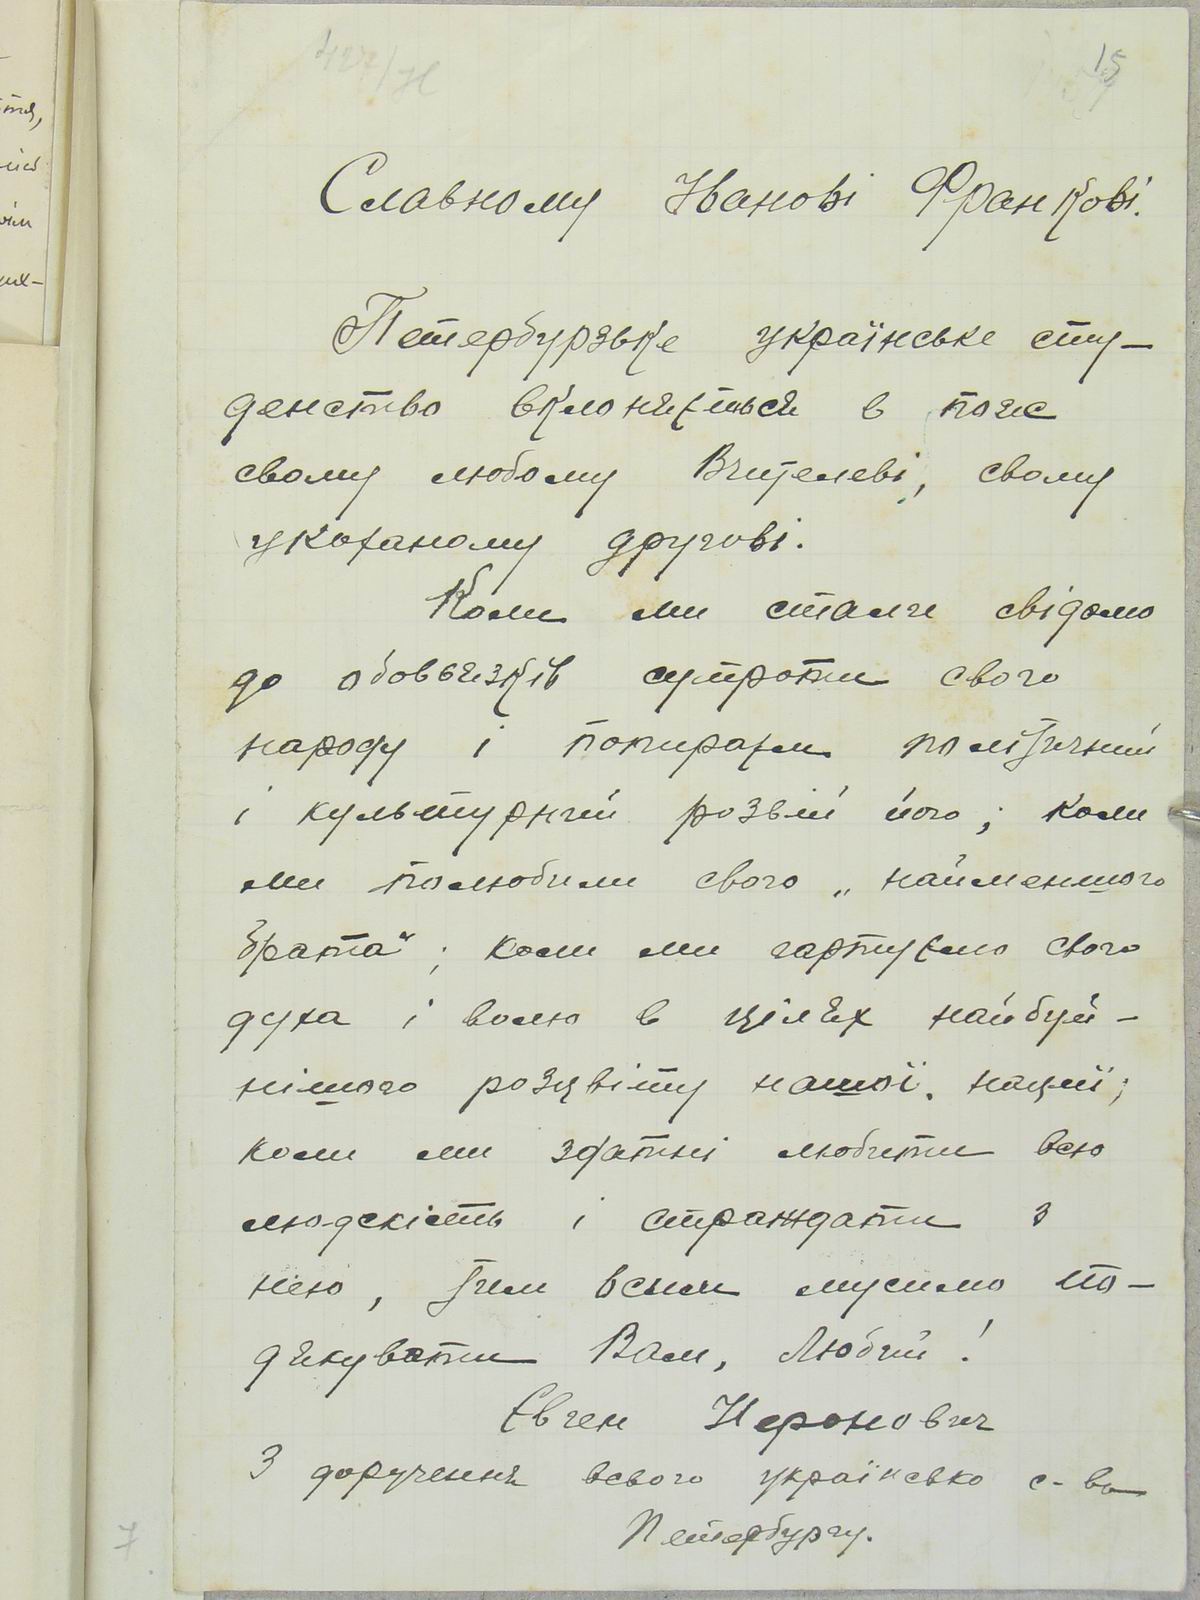 427/Н
15
Славному Іванові Франкові.
Петербурзьке українське сту-
денство вклоняєтьсь в пояс
свому любому Вчителеві, свому
укоханому другові.
Коли ми стали свідомо
до обовъязків супроти свого
народу і попираєм політичний
і культурний розвій його; коли
ми полюбили свого „найменшого
брата“; коли ми гартуємо свого
духа і волю в цілях найбуй-
нішого розцвіту нашої нації;
коли ми здатні любити всю
людскість і страждати з
нею, тим всим мусимо по-
дякувати Вам, Любий!
Євген Неронович
З доручення всього українсько с-ва
Петербургу.
7